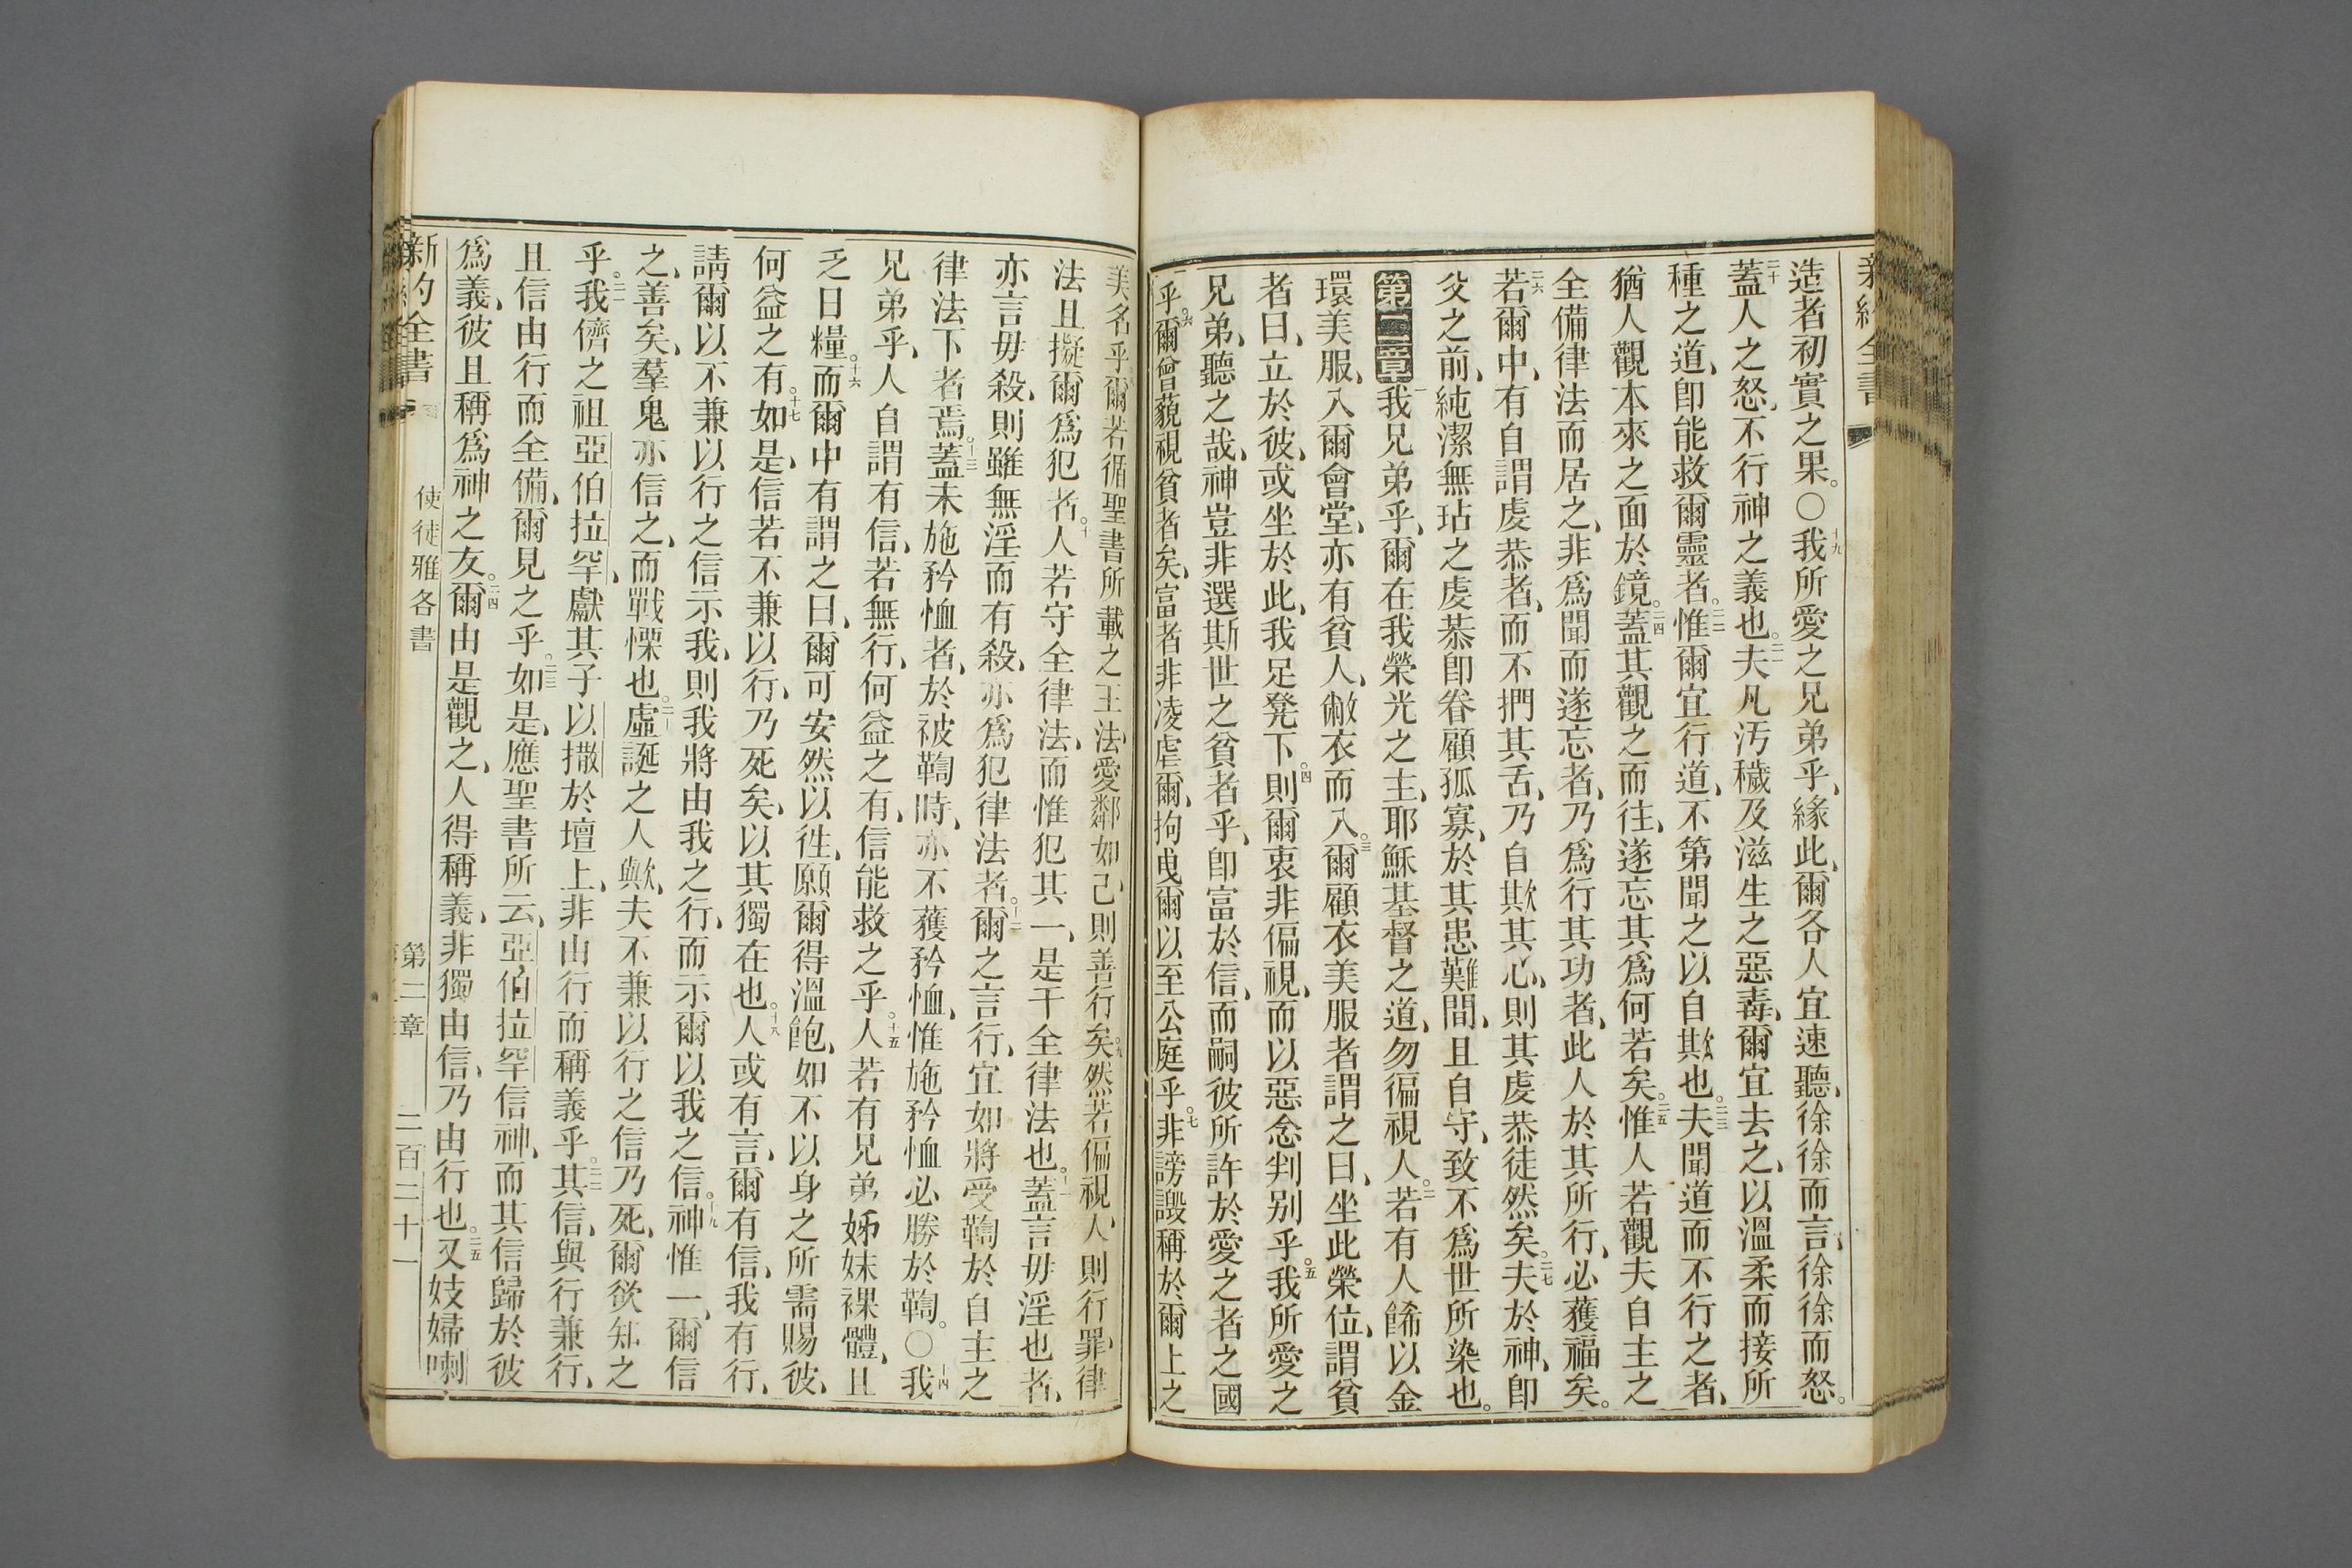 造者初實之果。○十九我所愛之兄弟乎、緣此、爾各人宜速聽、徐徐而言、徐徐而怒。
二十蓋人之怒、不行神之義也。二一夫凡汚穢及滋生之惡毒、爾宜去之、以溫柔而接所
種之道、卽能救爾靈者。二二惟爾宜行道、不第聞之以自欺也。二三夫聞道而不行之者、
猶人觀本來之面於鏡。二四蓋其觀之而往、遂忘其爲何若矣。二五惟人若觀夫自主之
全備律法而居之、非爲聞而遂忘者、乃爲行其功者、此人於其所行、必獲福矣。
二六若爾中、有自謂虔恭者、而不捫其舌、乃自欺其心、則其虔恭徒然矣。二七夫於神、卽
父之前、純潔無玷之虔恭卽眷顧孤寡、於其患難間、且自守、致不爲世所染也。
第二章一我兄弟乎、爾在我榮光之主、耶穌基督之道、勿徧視人。二若有人餙以金
環美服、入爾會堂、亦有貧人、敝衣而入。三爾顧衣美服者謂之曰、坐此榮位、謂貧
者曰、立於彼、或坐於此、我足凳下。四則爾衷非偏視、而以惡念判别乎。五我所愛之
兄弟、聽之哉、神豈非選斯世之貧者乎、卽富於信、而嗣彼所許於愛之者之國
乎。六爾曾藐視貧者矣、富者非凌虐爾、拘曳爾以至公庭乎。七非謗讟稱於爾上之
美名乎爾若循聖書所載之王法、愛鄰如己、則善行矣。九然若偏視人、則行罪、律
法且擬爾爲犯者。十人若守全律法、而惟犯其一、是干全律法也。十一蓋言毋淫也者、
亦言毋殺、則雖無淫而有殺、亦爲犯律法者。十二爾之言行、宜如將受鞫於自主之
律法下者焉。十三蓋未施矜恤者、於被鞫時、亦不獲矜恤、惟施矜恤必勝於鞫。○十四我
兄弟乎、人自謂有信、若無行、何益之有、信能救之乎。十五人若有兄弟姊妹裸體、且
乏日糧。十六而爾中有謂之曰、爾可安然以徃、願爾得溫飽、如不以身之所需賜彼、
何益之有。十七如是、信若不兼以行、乃死矣、以其獨在也。十八人或有言、爾有信、我有行、
請爾以不兼以行之信示我、則我將由我之行、而示爾以我之信。十九神惟一、爾信
之、善矣、羣鬼亦信之、而戰慄也。二十虛誕之人歟、夫不兼以行之信乃死、爾欲知之
乎。二一我儕之祖亞伯拉罕、獻其子以撒於壇上、非由行而稱義乎。二二其信、與行兼行、
且信由行而全備、爾見之乎。二三如是、應聖書所云、亞伯拉罕信神、而其信歸於彼
爲義、彼且稱爲神之友。二四爾由是觀之、人得稱義、非獨由信、乃由行也。二五又妓婦喇
新約全書 使徒雅各書 第二章 二百二十一